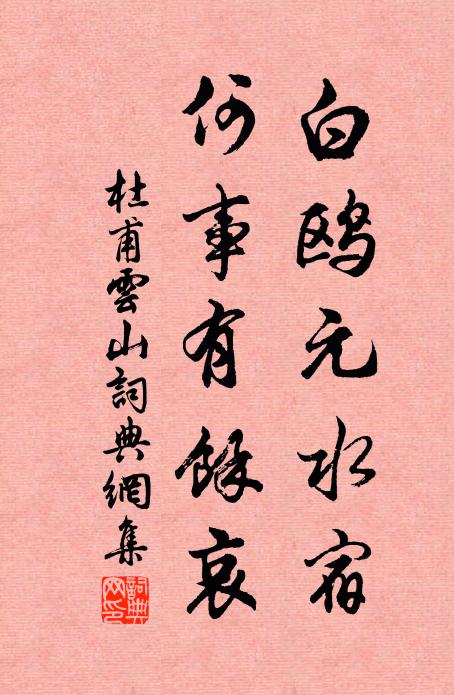 白鷗元水宿
何事有餘哀
杜甫雲山詞典網集
詞典網印